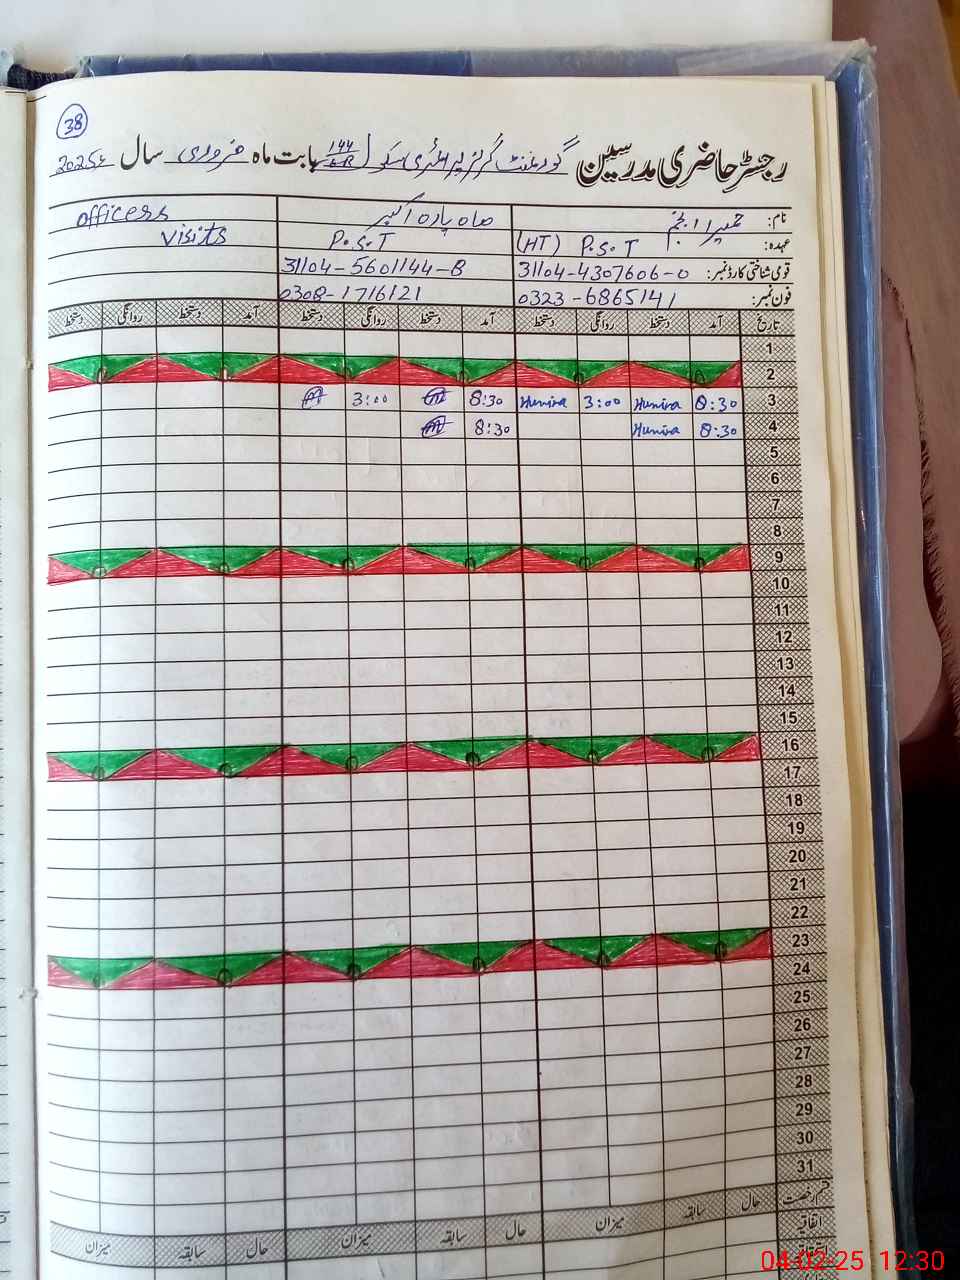 38
رجسٹر حاضری مدرسین گورنمنٹ گرلز پرائمری سکول 144/6R بابت ماہ فروری سال 2025ء
نام: حمیرا انجم ماہ پارہ اکبر officers
عہدہ: (HT) P.S.T P.S.T visits
قومی شناختی کارڈ نمبر: 31104-4307606-0 31104-5601144-8
فون نمبر: 0323-6865141 0308-1716121
تاریخ آمد دستخط روانگی دستخط آمد دستخط روانگی دستخط آمد دستخط روانگی دستخط
1
2
3 8:30 Humira 3:00 Humira 8:30 3:00
4 8:30 Humira 8:30
5
6
7
8
9
10
11
12
13
14
15
16
17
18
19
20
21
22
23
24
25
26
27
28
29
30
31
قسم رخصت حال سابقہ میزان حال سابقہ میزان حال سابقہ میزان
اتفاقیہ
04-02-25 12:30